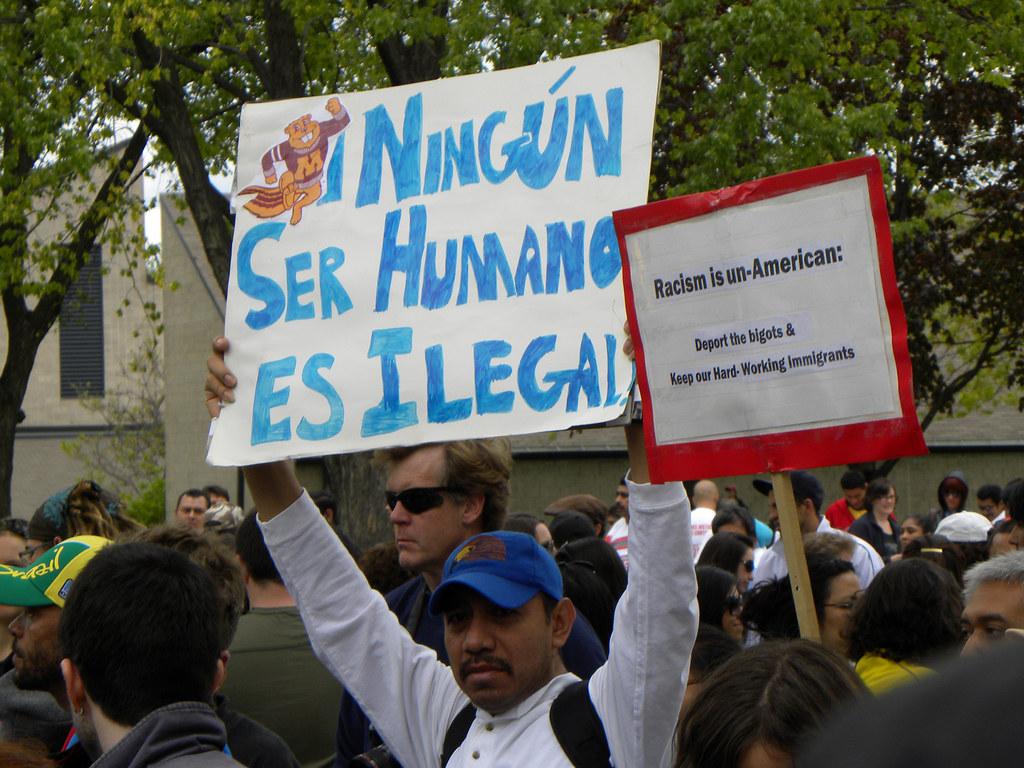 ¡NINGÚN
SER HUMANO
ES ILEGAL
M
Racism is un-American:
Deport the bigots &
Keep our Hard-Working Immigrants